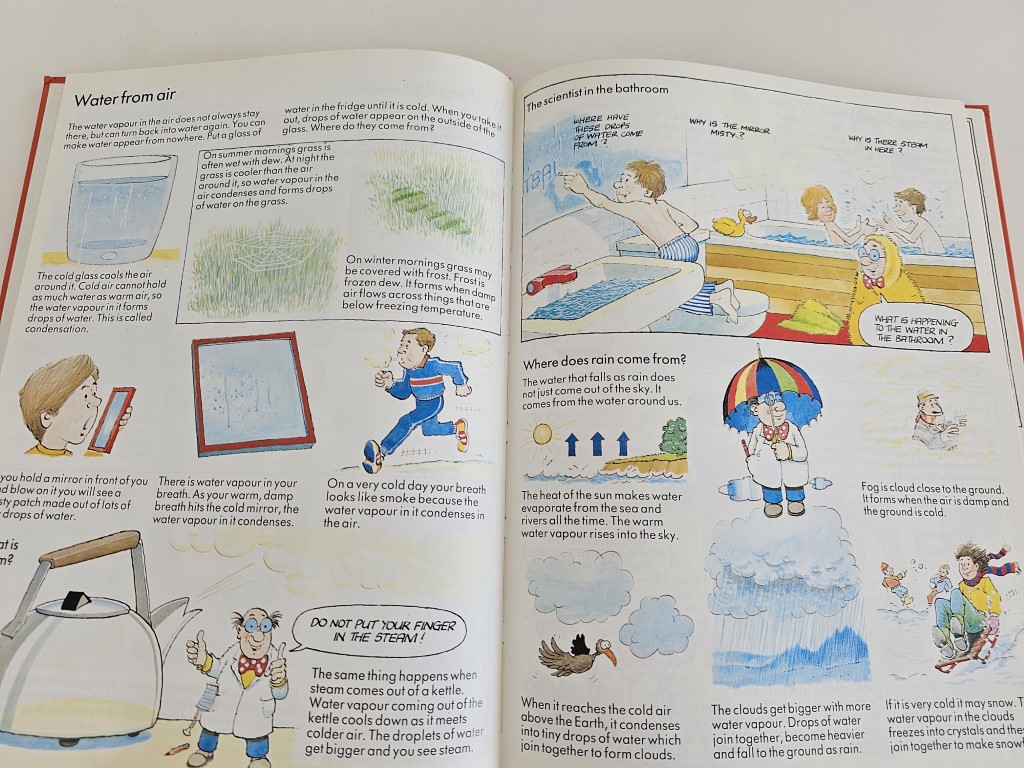 Water from air
The water vapour in the air does not always stay
there, but can turn back into water again. You can
make water appear from nowhere. Put a glass of
water in the fridge until it is cold. When you take it
out, drops of water appear on the outside of the
glass. Where do they come from?
The cold glass cools the air
around it. Cold air cannot hold
as much water as warm air, so
the water vapour in it forms
drops of water. This is called
condensation.
On summer mornings grass is
often wet with dew. At night the
grass is cooler than the air
around it, so water vapour in the
air condenses and forms drops
of water on the grass.
On winter mornings grass may
be covered with frost. Frost is
frozen dew. It forms when damp
air flows across things that are
below freezing temperature.
you hold a mirror in front of you
nd blow on it you will see a
sty patch made out of lots of
drops of water.
There is water vapour in your
breath. As your warm, damp
breath hits the cold mirror, the
water vapour in it condenses.
On a very cold day your breath
looks like smoke because the
water vapour in it condenses in
the air.
at is
m?
DO NOT PUT YOUR FINGER
IN THE STEAM!
The same thing happens when
steam comes out of a kettle.
Water vapour coming out of the
kettle cools down as it meets
colder air. The droplets of water
get bigger and you see steam.
The scientist in the bathroom
WHERE HAVE
THESE DROPS
OF WATER COME
FROM?
WHY IS THE MIRROR
MISTY?
WHY IS THERE STEAM
IN HERE?
WHAT IS HAPPENING
TO THE WATER IN
THE BATHROOM?
Where does rain come from?
The water that falls as rain does
not just come out of the sky. It
comes from the water around us.
The heat of the sun makes water
evaporate from the sea and
rivers all the time. The warm
water vapour rises into the sky.
When it reaches the cold air
above the Earth, it condenses
into tiny drops of water which
join together to form clouds.
The clouds get bigger with more
water vapour. Drops of water
join together, become heavier
and fall to the ground as rain.
Fog is cloud close to the ground.
It forms when the air is damp and
the ground is cold.
If it is very cold it may snow. T
water vapour in the clouds
freezes into crystals and the
join together to make snowf